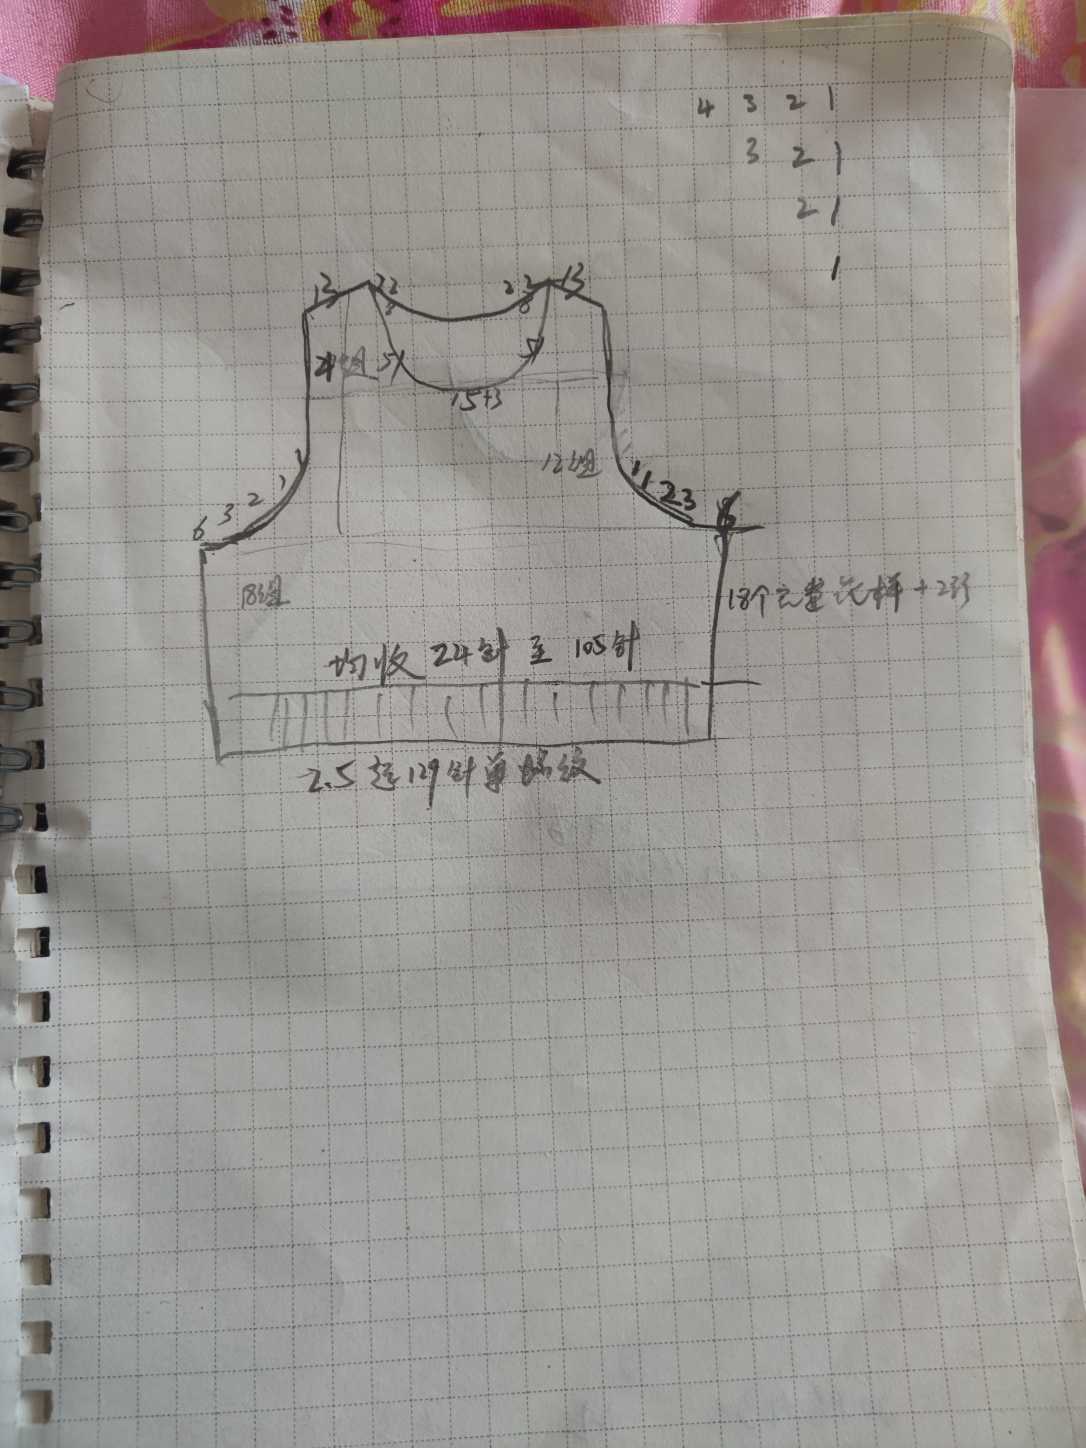 4 3 2 1
3 2 1
2 1
1
13 22 22 13
24组 51 51
15+3
12组
1 1 1 1
6 3 2 2 3
18组 18个完整花样+2行
均收24针至105针
2.5起129针单螺纹